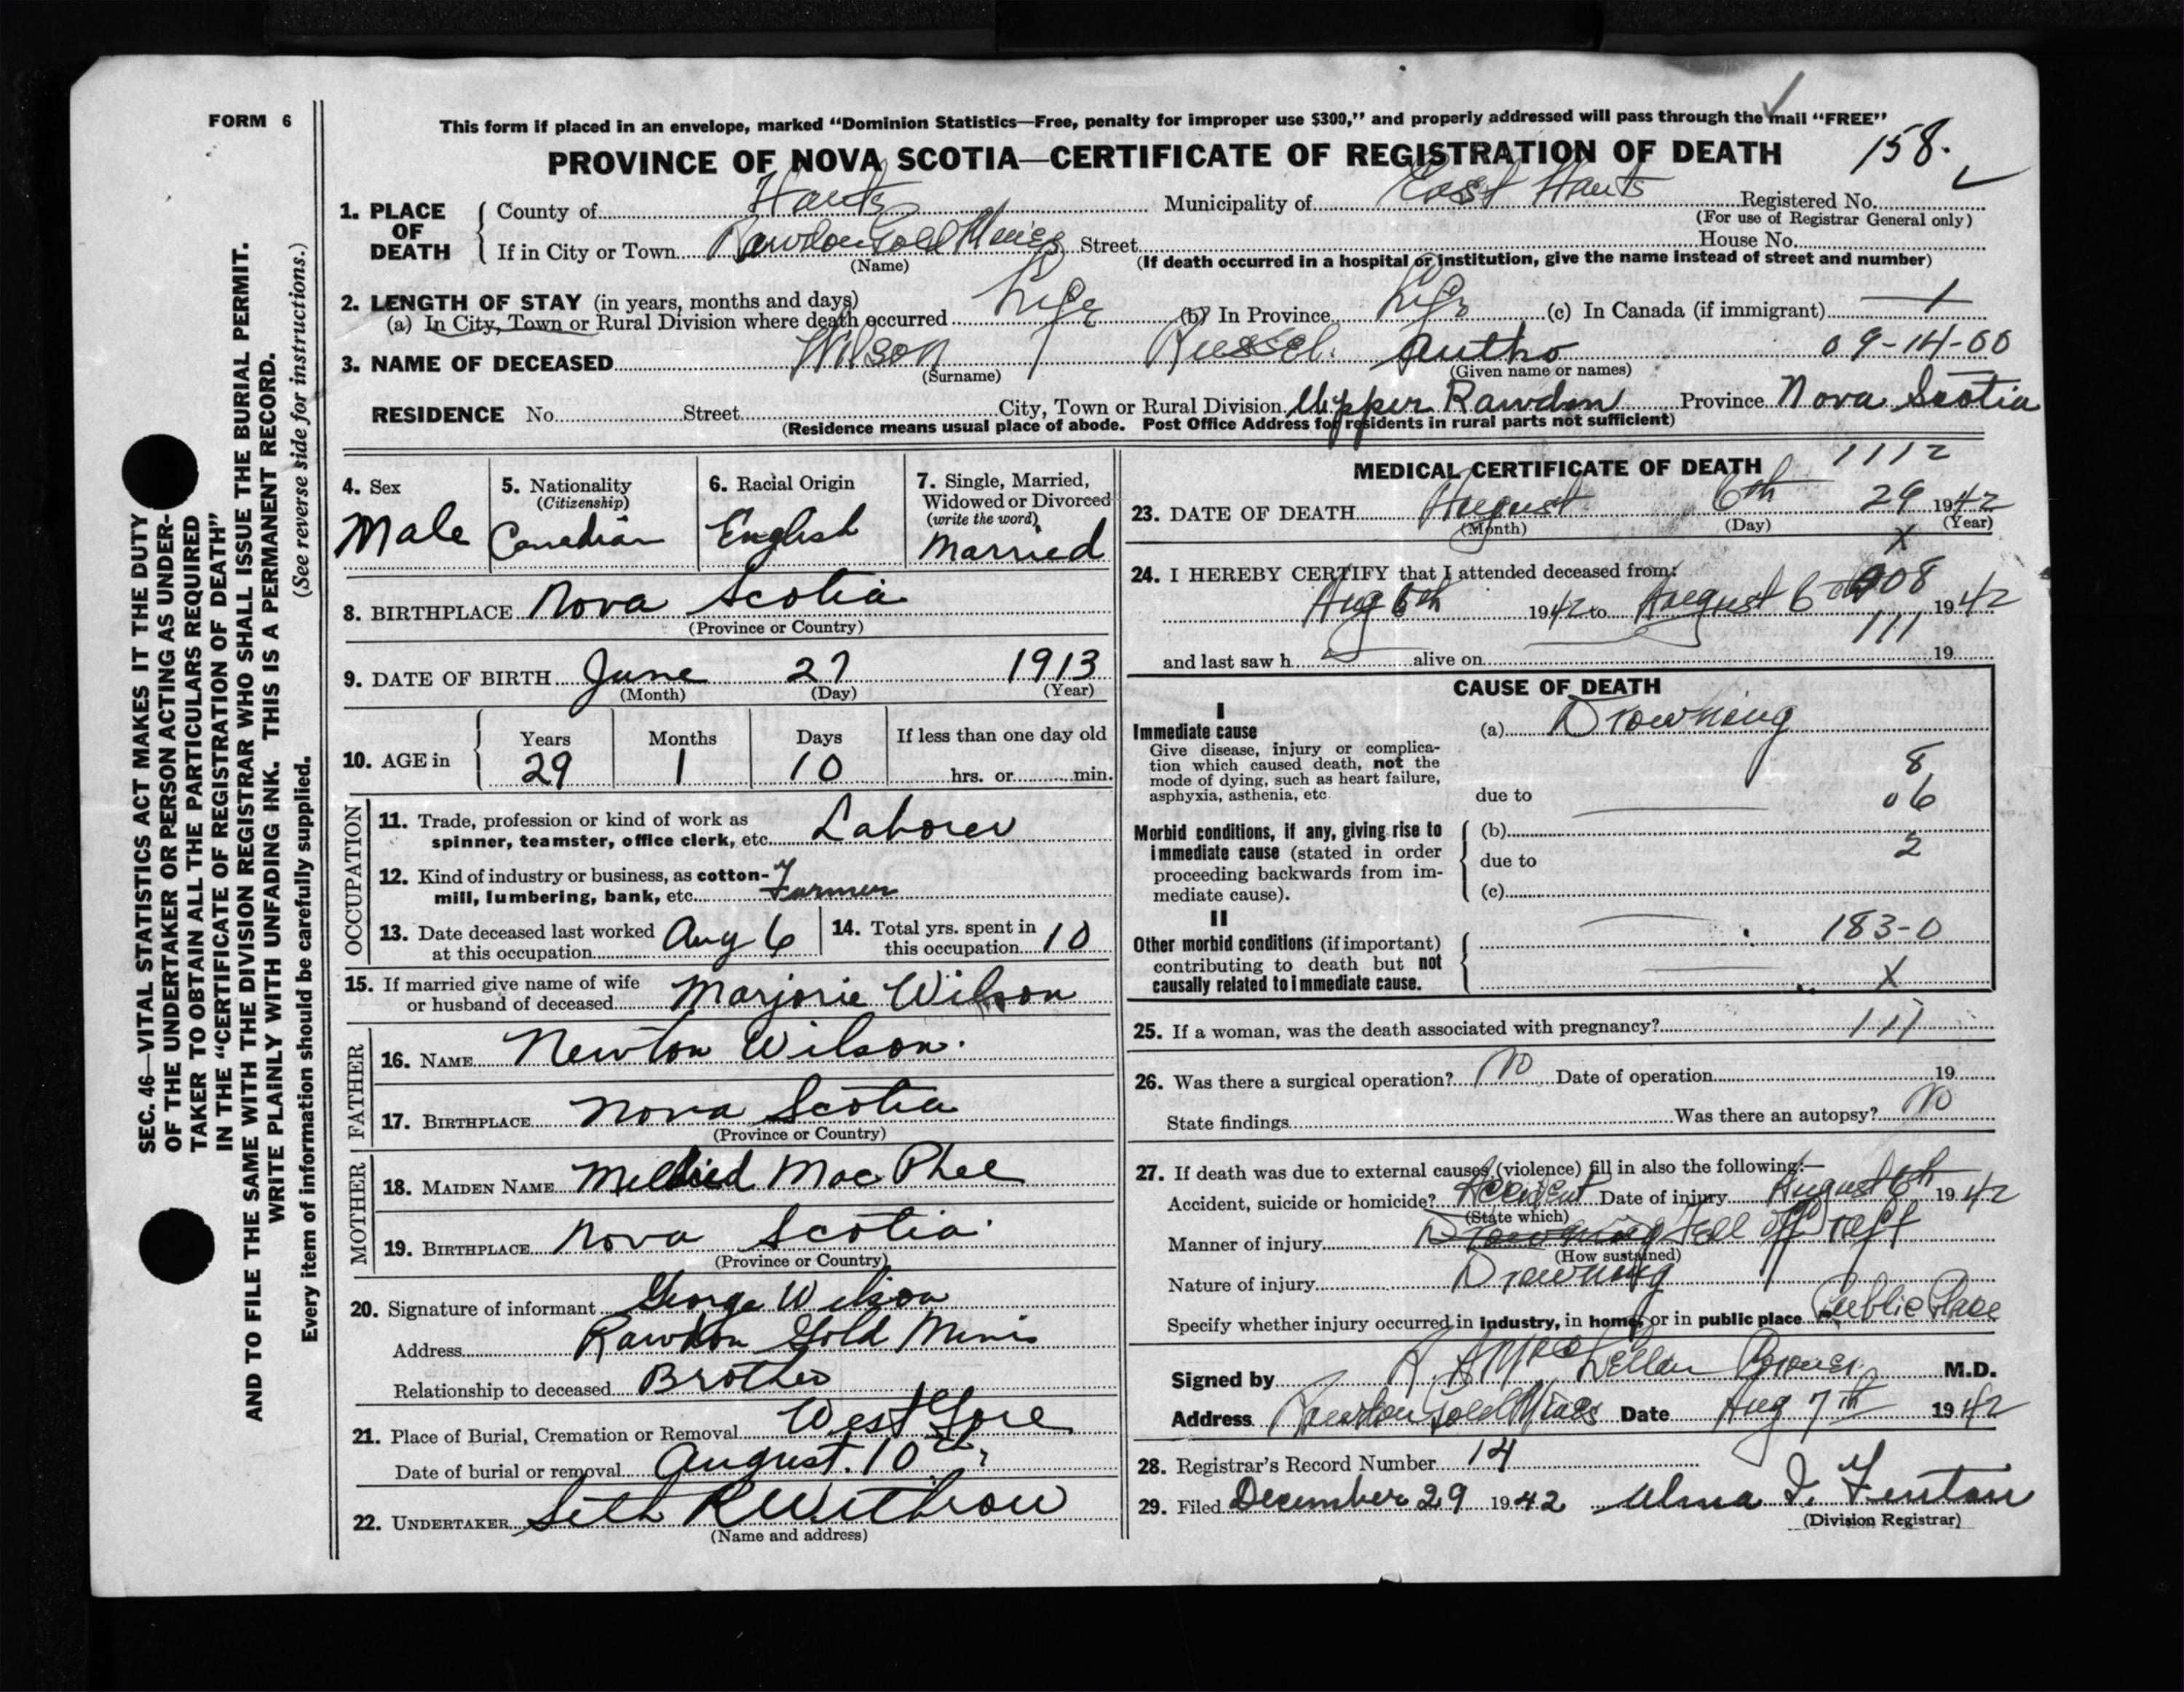 FORM 6
This form if placed in an envelope, marked “Dominion Statistics—Free, penalty for improper use $300,” and properly addressed will pass through the mail “FREE”
PROVINCE OF NOVA SCOTIA—CERTIFICATE OF REGISTRATION OF DEATH 158.
1. PLACE OF DEATH { County of Hants Municipality of East Hants Registered No.
(For use of Registrar General only)
If in City or Town Rawdon Gold Mines Street House No.
(Name) (If death occurred in a hospital or institution, give the name instead of street and number)
2. LENGTH OF STAY (in years, months and days)
(a) In City, Town or Rural Division where death occurred Life (b) In Province Life (c) In Canada (if immigrant)
3. NAME OF DECEASED Wilson Russel. Autho 09-14-00
(Surname) (Given name or names)
RESIDENCE No. Street City, Town or Rural Division Upper Rawdon Province Nova Scotia
(Residence means usual place of abode. Post Office Address for residents in rural parts not sufficient)
SEC. 46—VITAL STATISTICS ACT MAKES IT THE DUTY
OF THE UNDERTAKER OR PERSON ACTING AS UNDER-
TAKER TO OBTAIN ALL THE PARTICULARS REQUIRED
IN THE “CERTIFICATE OF REGISTRATION OF DEATH”
AND TO FILE THE SAME WITH THE DIVISION REGISTRAR WHO SHALL ISSUE THE BURIAL PERMIT.
WRITE PLAINLY WITH UNFADING INK. THIS IS A PERMANENT RECORD.
Every item of information should be carefully supplied. (See reverse side for instructions.)
4. Sex 5. Nationality 6. Racial Origin 7. Single, Married,
(Citizenship) Widowed or Divorced
(write the word)
Male Canadian English Married
8. BIRTHPLACE Nova Scotia
(Province or Country)
9. DATE OF BIRTH June 27 1913
(Month) (Day) (Year)
10. AGE in { Years Months Days If less than one day old
29 1 10 hrs. or min.
OCCUPATION
11. Trade, profession or kind of work as
spinner, teamster, office clerk, etc. Laborer
12. Kind of industry or business, as cotton-
mill, lumbering, bank, etc. Farmer
13. Date deceased last worked
at this occupation Aug 6
14. Total yrs. spent in
this occupation 10
15. If married give name of wife
or husband of deceased Marjorie Wilson
FATHER
16. NAME Newton Wilson.
17. BIRTHPLACE Nova Scotia
(Province or Country)
MOTHER
18. MAIDEN NAME Mac Phee
19. BIRTHPLACE Nova Scotia
(Province or Country)
20. Signature of informant George Wilson
Address Rawdon Gold Mines
Relationship to deceased Brother
21. Place of Burial, Cremation or Removal West Gore
Date of burial or removal August. 10
22. UNDERTAKER Seth R Withrow
(Name and address)
MEDICAL CERTIFICATE OF DEATH 1112
23. DATE OF DEATH August 6th 29 1942
(Month) (Day) (Year)
X
24. I HEREBY CERTIFY that I attended deceased from:
908
Aug 6th 1942 to August 6 1942
111
and last saw h alive on 19
CAUSE OF DEATH
I
Immediate cause (a) Drowning
Give disease, injury or complica-
tion which caused death, not the 8
mode of dying, such as heart failure,
asphyxia, asthenia, etc. due to 06
Morbid conditions, if any, giving rise to (b)
immediate cause (stated in order due to 2
proceeding backwards from im-
mediate cause). (c)
II
Other morbid conditions (if important) 183-0
contributing to death but not
causally related to immediate cause. X
25. If a woman, was the death associated with pregnancy? 111
26. Was there a surgical operation? No Date of operation 19
State findings Was there an autopsy? No
27. If death was due to external causes (violence) fill in also the following:—
Accident, suicide or homicide? Accident Date of injury August 6th 1942
(State which)
Manner of injury Drowning Fell off raft
(How sustained)
Nature of injury Drowning
Specify whether injury occurred in industry, in home, or in public place Public Place
Signed by Coroner M.D.
Address Rawdon Gold Mines Date Aug 7th 1942
28. Registrar's Record Number 14
29. Filed December 29 1942 Alma I. Fenton
(Division Registrar)